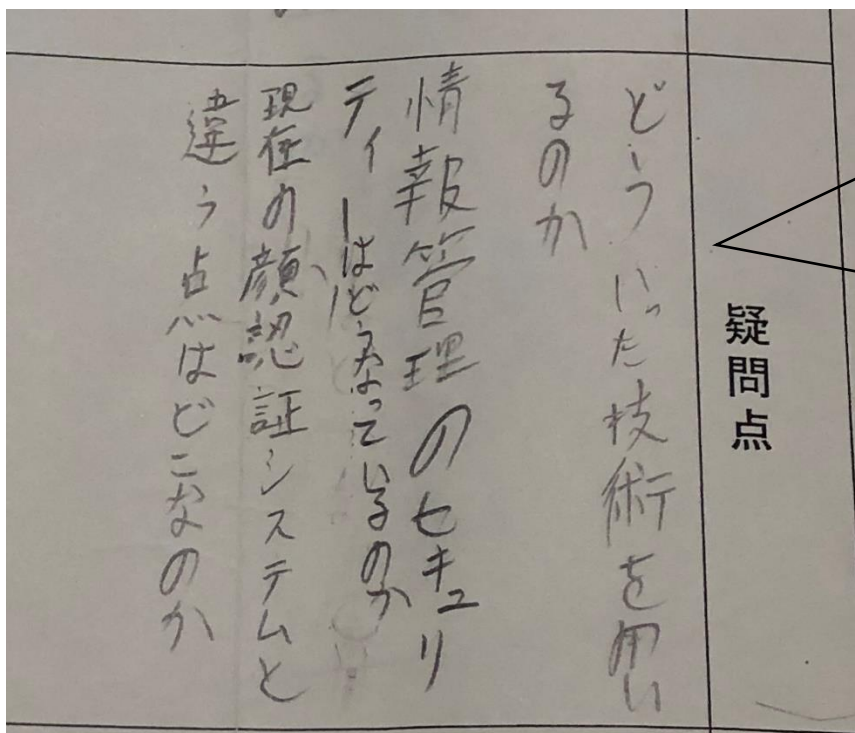 疑問点
どういった技術を用い
るのか
情報管理のセキュリ
ティーはどうなっているのか
現在の顔認証システムと
違う点はどこなのか